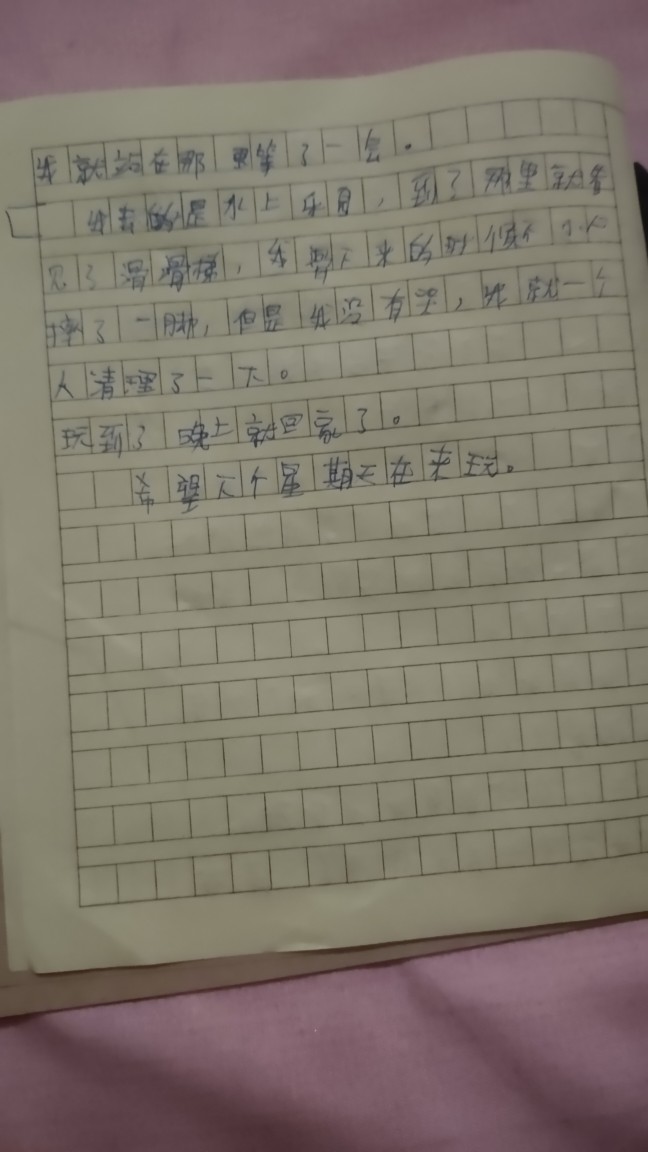 我就站在那里等了一会。
我去的是水上乐园，到了那里就看
见了滑滑梯，我滑下来的时候不小心
摔了一脚，但是我没有哭，我就一个
人清理了一下。
玩到了晚上就回家了。
希望下个星期天在来玩。